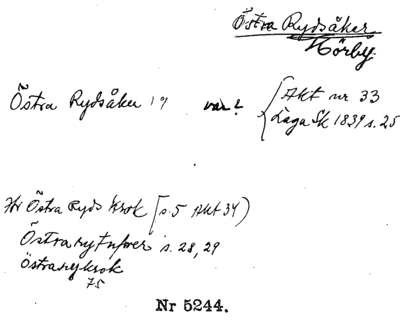 Östra Rydsåker
Hörby
Östra Rydsåker 19 var? Akt nr 33
Laga Sk 1839 s. 25
Hr Östra Ryds Krok [s. 5 Akt 34)
Östra s. 28, 29
östrarykrok
75
Nr 5244.